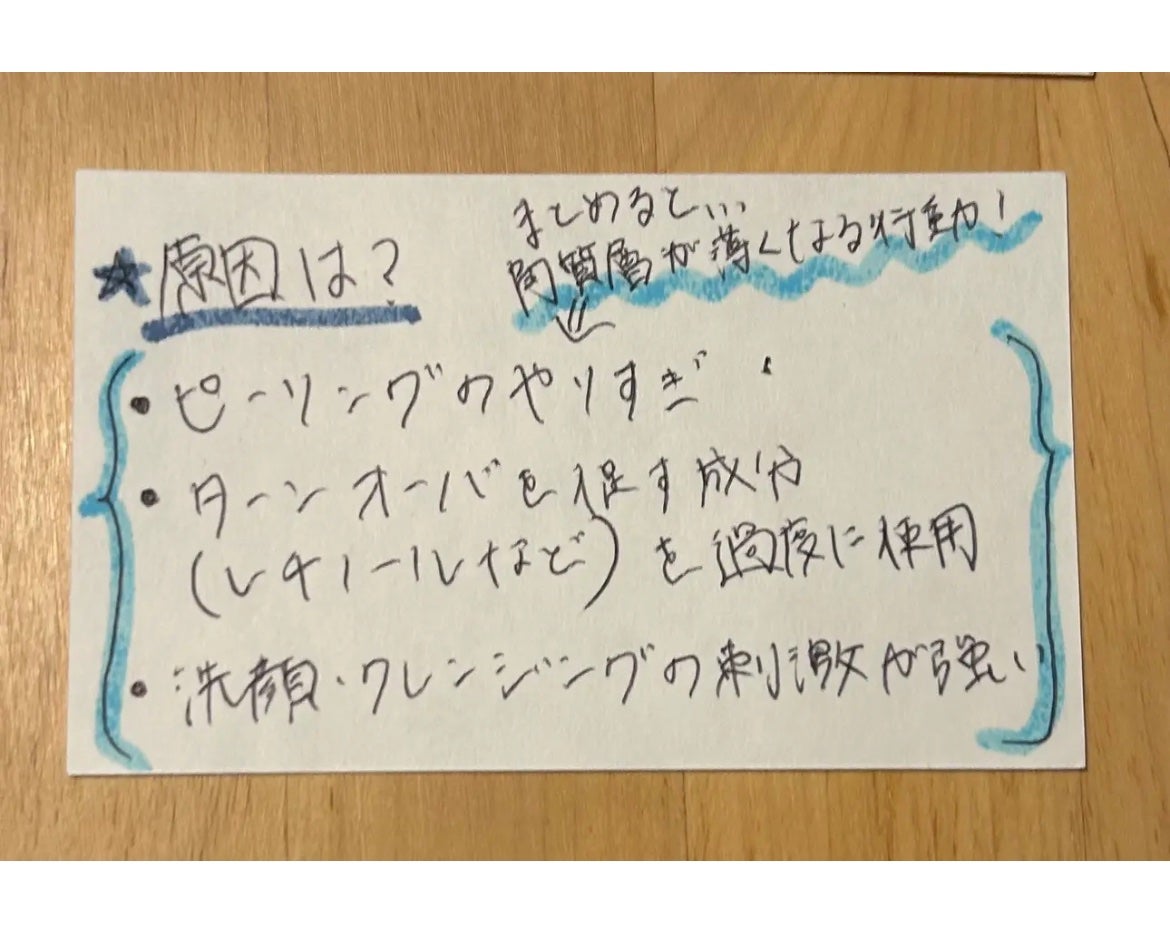 ★原因は?
まとめると...
角質層が薄くなる行動!
・ピーリングのやりすぎ
・ターンオーバを促す成分
(レチノールなど)を過度に使用
・洗顔・クレンジングの刺激が強い